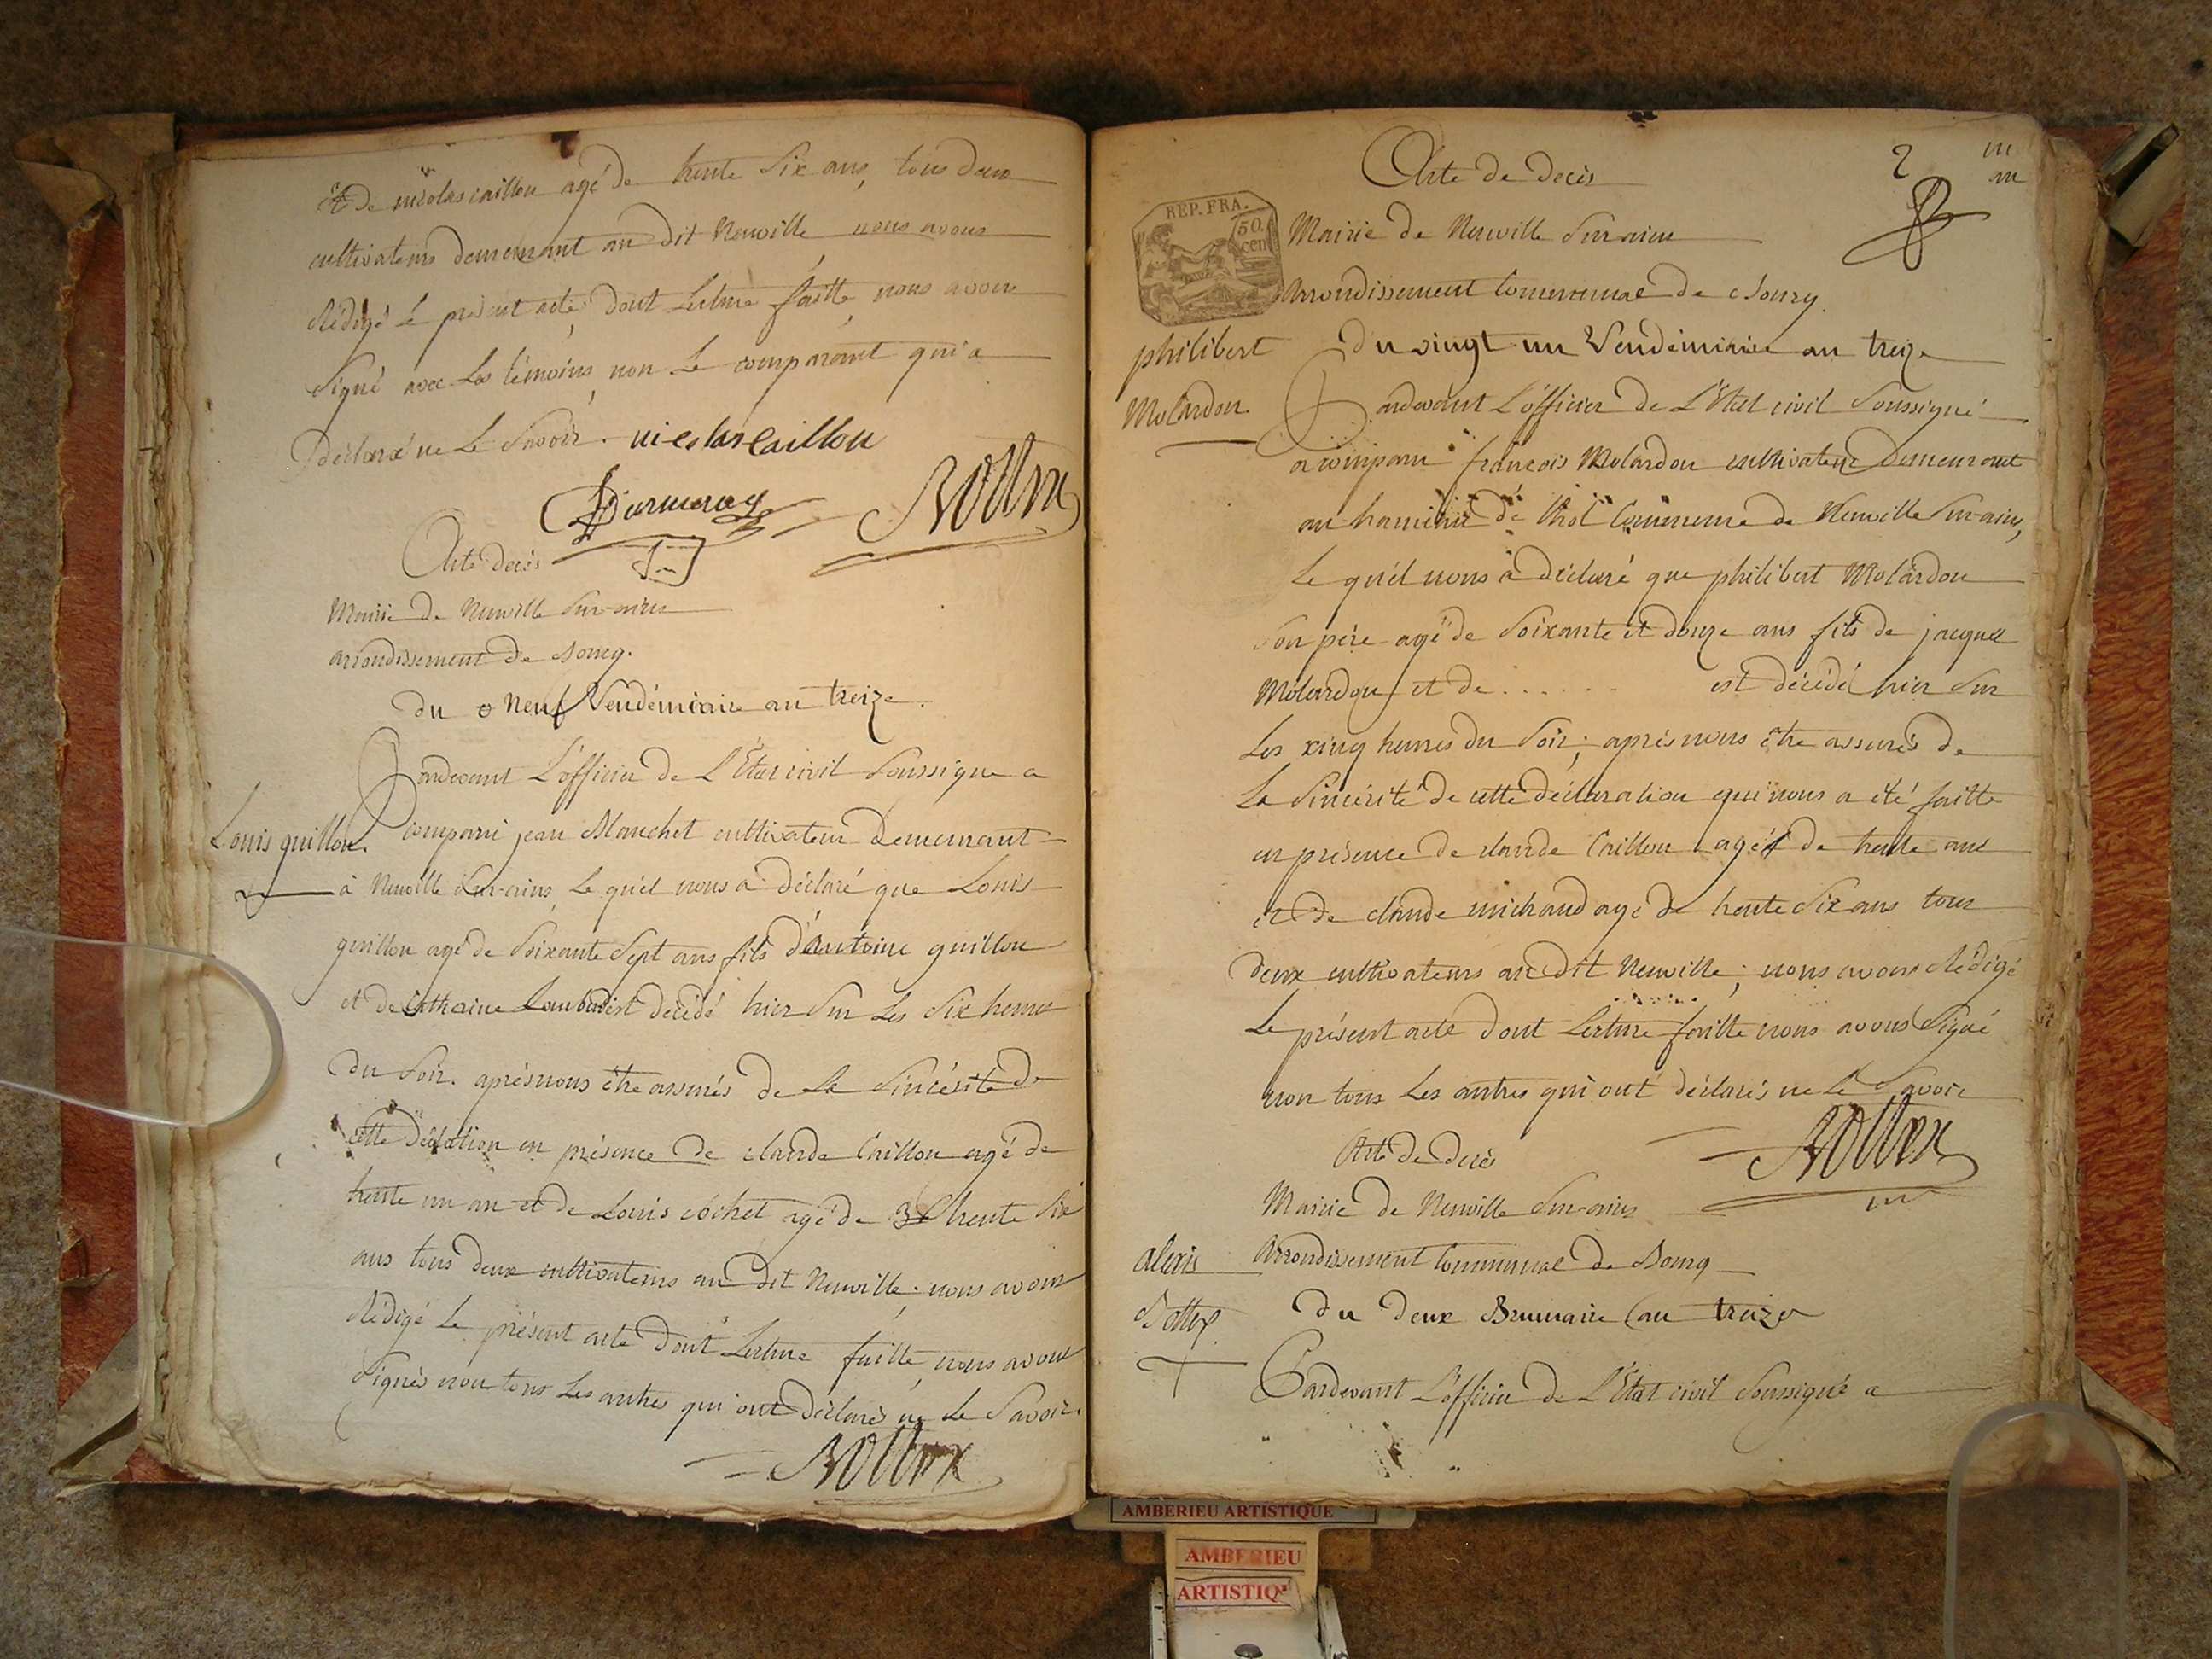 et de nicolas caillon agé de trente six ans, tous deux
cultivateurs demeurant au dit Neuville nous avons
Rédigé le présent acte dont Lecture faitte, nous avons
Signé avec Les témoins, non Le comparant qui a
déclaré ne Le Savoir. nicolas caillon
Acte decès
Mairie de Neuville Sur-ains
arrondissement de Bourg.
du neuf Vendémiaire an treize.
Pardevant L'officier de L'Etat civil Soussigné a
Louis guillon. comparu jean Blanchet cultivateur Demeurant
à Neuville Sur-ains, Le quel nous a déclaré que Louis
guillon agé de Soixante Sept ans fils d'Antoine guillon
et de Catherine est décédé hier Sur Les Six heures
du Soir. après nous être assurés de La Sincérité de
cette Déclation en présence de claude Caillon agé de
trente un an et de Louis cochet agé de trente Six
ans tous deux cultivateurs au dit Neuville. nous avons
Rédigé Le présent acte dont Lecture faitte, nous avons
Signés non tous Les autres qui ont déclarés ne Le Savoir.
Acte de decès
2
REP. FRA.
50.
cen
Mairie de Neuville Sur ains
arrondissement Communal de Bourg.
philibert Du vingt un Vendémiaire an treize
Molardon Pardevant L'officier de L'Etat civil Soussigné
a comparu françois Molardon cultivateur Demeurant
au hameau de Thol Commune de Neuville Sur-ains,
Le quel nous a déclaré que philibert Molardon
Son père agé de Soixante et douze ans fils de jacques
Molardon et de . . . . . . est décédé hier Sur
Les cinq heures du Soir; après nous être assurés de
La Sincérité de cette déclaration qui nous a été faitte
en présence de claude Caillon agé de trente ans
et de claude michaud agé de trente Six ans tous
deux cultivateurs au dit Neuville; nous avons Rédigé
Le présent acte dont Lecture faitte nous avons Signé
non tous Les autres qui ont déclarés ne Le Savoir
Acte de decès
Mairie de Neuville Sur-ains
alexis arrondissement Communal de Bourg
Du deux Brumaire an treize
Pardevant L'officier de L'Etat civil Soussigné a
AMBERIEU ARTISTIQUE
AMBERIEU
ARTISTIQ